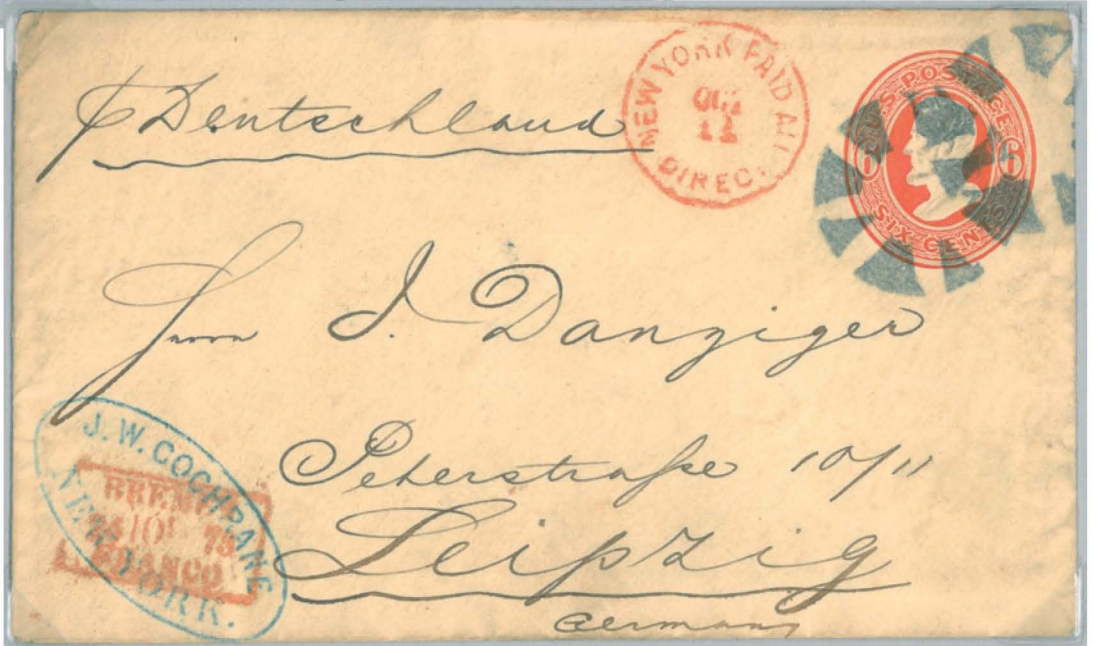 p Deutschland
NEW YORK PAID ALL
OCT
11
DIRECT
U.S. POSTAGE
6 6
SIX CENTS
Herrn J. Danziger
Peterstraße 10/11
Leipzig
Germany
J. W. COCHRANE
NEW YORK.
BREMEN
FRANCO